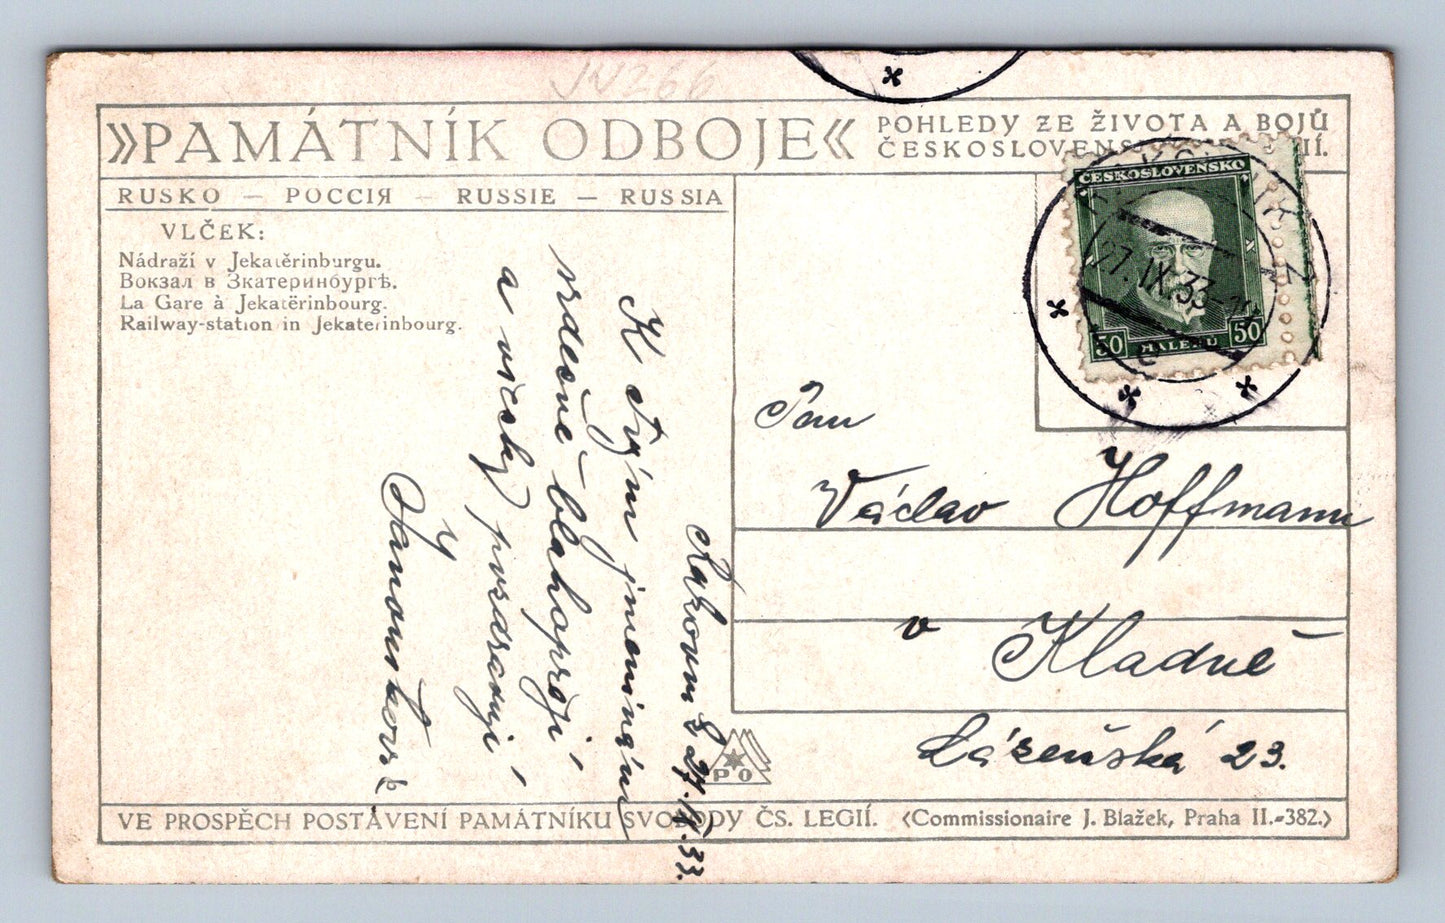 JV266
»PAMÁTNÍK ODBOJE«
POHLEDY ZE ŽIVOTA A BOJŮ
ČESKOSLOVENS
IÍ.
RUSKO — РОССІЯ — RUSSIE — RUSSIA
VLČEK:
Nádraží v Jekatěrinburgu.
Вокзал в Экатеринбургѣ.
La Gare à Jekatěrinbourg.
Railway-station in Jekaterinbourg.
ČESKOSLOVENSKO
50 HALÉŘŮ 50
27.IX.33
Pan
Václav Hoffmann
v Kladně
Lázeňská 23.
27.IX.33.
K Tvým jmeninám
srdečně blahopřejí
a všecky pozdravují
Janouškovi
PO
VE PROSPĚCH POSTAVENÍ PAMÁTNÍKU SVOBODY ČS. LEGIÍ. <Commissionaire J. Blažek, Praha II.-382.>